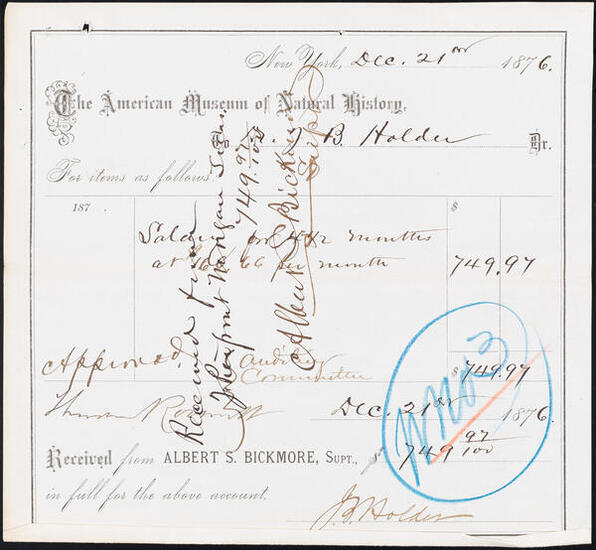 New York, Dec. 21st 1876.
The American Museum of Natural History,
To Dr. J B. Holder Dr.
For items as follows
187 $
Salary for 4 1/2 months
at 166 66 per month 749.97
Approved. Auditing
Committee
$749.97
Dec. 21st 1876.
Received from ALBERT S. BICKMORE, SUPT., $ 749 97/100
in full for the above account.
J. B. Holder
Received from
J Pierpont Morgan Treas.
749.97/100
Albert S. Bickmore
Supt
No 3